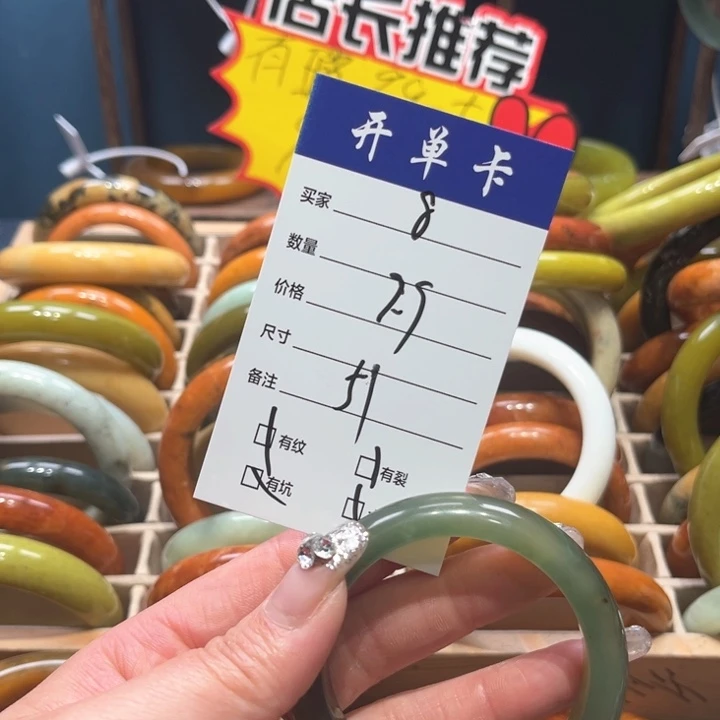 店长推荐
开单卡
买家 8
数量
价格 29
尺寸
备注 51
有纹 有裂
有坑